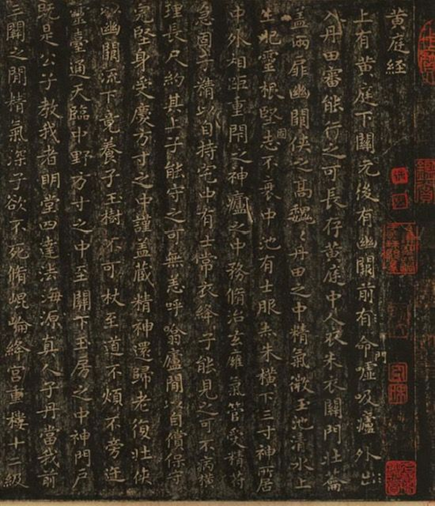 黃庭經
上有黃庭下關元後有幽關前有命門噓吸廬外出
入丹田審能行之可長存黃庭中人衣朱衣關門壯籥
蓋兩扉幽關俠之高魏魏丹田之中精氣微玉池清水上
生肥靈根堅志不衰中池有士服赤朱橫下三寸神所居
中外相距重閉之神廬之中務脩治玄癰氣管受精符
急固子精以自持宅中有士常衣絳子能見之可不病橫
理長尺約其上子能守之可無恙呼噏廬間以自償保守
完堅身受慶方寸之中謹蓋藏精神還歸老復壯俠
以幽關流下竟養子玉樹不可杖至道不煩不旁迕
靈臺通天臨中野方寸之中至關下玉房之中神門戶
既是公子教我者明堂四達法海源真人子丹當我前
三關之間精氣深子欲不死脩崐崘絳宮重樓十二級